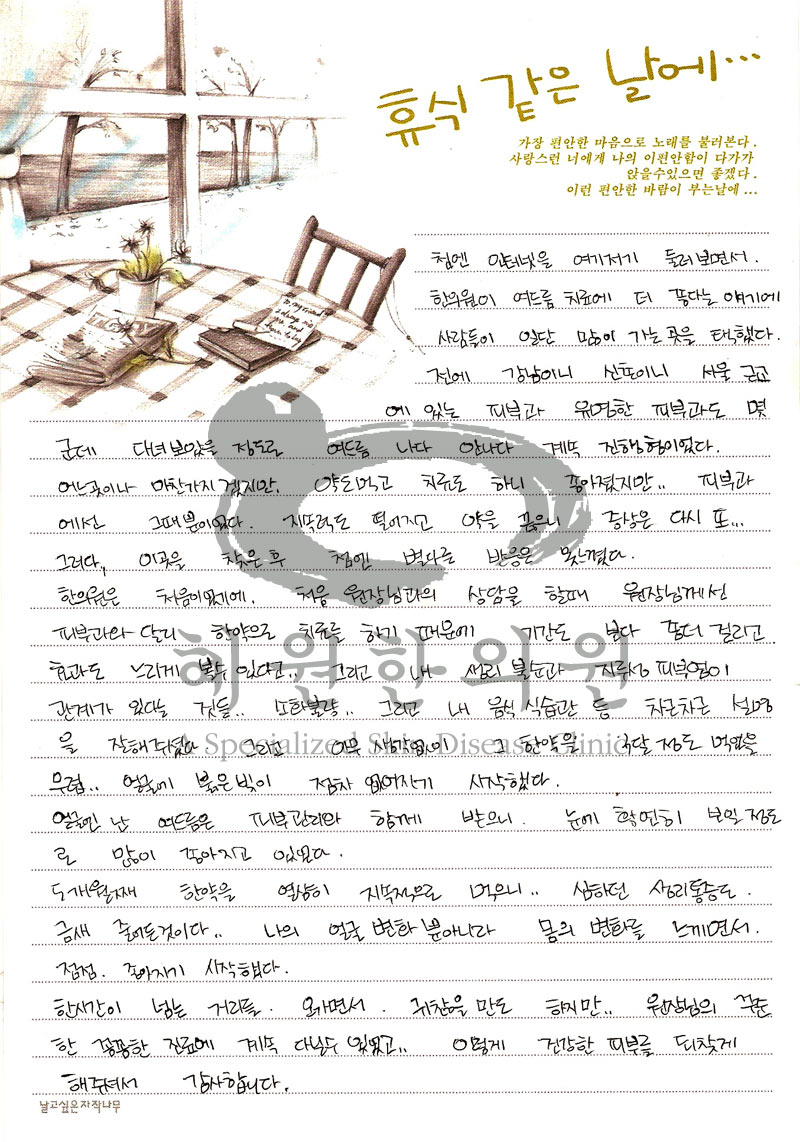 휴식 같은 날에...
가장 편안한 마음으로 노래를 불러본다.
사랑스런 너에게 나의 이편안함이 다가가
앉을수있으면 좋겠다.
이런 편안한 바람이 부는날에...
첨엔 인터넷을 여기저기 둘러보면서.
한의원이 여드름 치료에 더 좋다는 얘기에
사람들이 일단 많이 가는 곳을 택했다.
전에 강남이니 신포이니 서울 근교
에 있는 피부과 유명한 피부과도 몇
군데 다녀보았을 정도로 여드름 나다 안나다 계속 진행형이었다.
어느곳이나 마찬가지겠지만, 약도먹고 치료도 하니 좋아졌지만.. 피부과
에선 그때뿐이었다. 지또력도 떨어지고 약을 끊으니 증상은 다시 또...
그러다.. 이곳을 찾은후 첨엔 별다른 반응은 못느꼈다.
한의원은 처음이었기에. 처음 원장님과의 상담을 할때 원장님께선
피부과와 달리 한약으로 치료를 하기 때문에 기간도 보다 좀더 걸리고
효과도 느리게 볼수 있다고.. 그리고 내 생리 불순과 지루성 피부염이
관계가 있다는 것들.. 소화불량.. 그리고 내 음식 식습관 등 차근차근 설명
을 잘해주셨다 그리고 아무 생각없이 그 한약을 한달 정도 먹었을
무렵.. 얼굴에 붉은빛이 점차 없어지기 시작했다.
얼굴엔 난 여드름은 피부관리와 함께 받으니. 눈에 확연히 보일 정도
로 많이 좋아지고 있었다.
5개월째 한약을 열심히 지속적으로 먹으니.. 심하던 생리통증도.
금새 줄어든것이다.. 나의 얼굴 변화 뿐아니라 몸의 변화를 느끼면서.
점점. 좋아지기 시작했다.
한시간이 넘는 거리를. 오가면서. 귀찮을만도 하지만.. 원장님의 꾸준
한 꼼꼼한 진료에 계속 다닐수 있었고.. 이렇게 건강한 피부를 되찾게
해주셔서 감사합니다.
혜원한의원
A Specialized Skin Disease Clinic
날고싶은자작나무